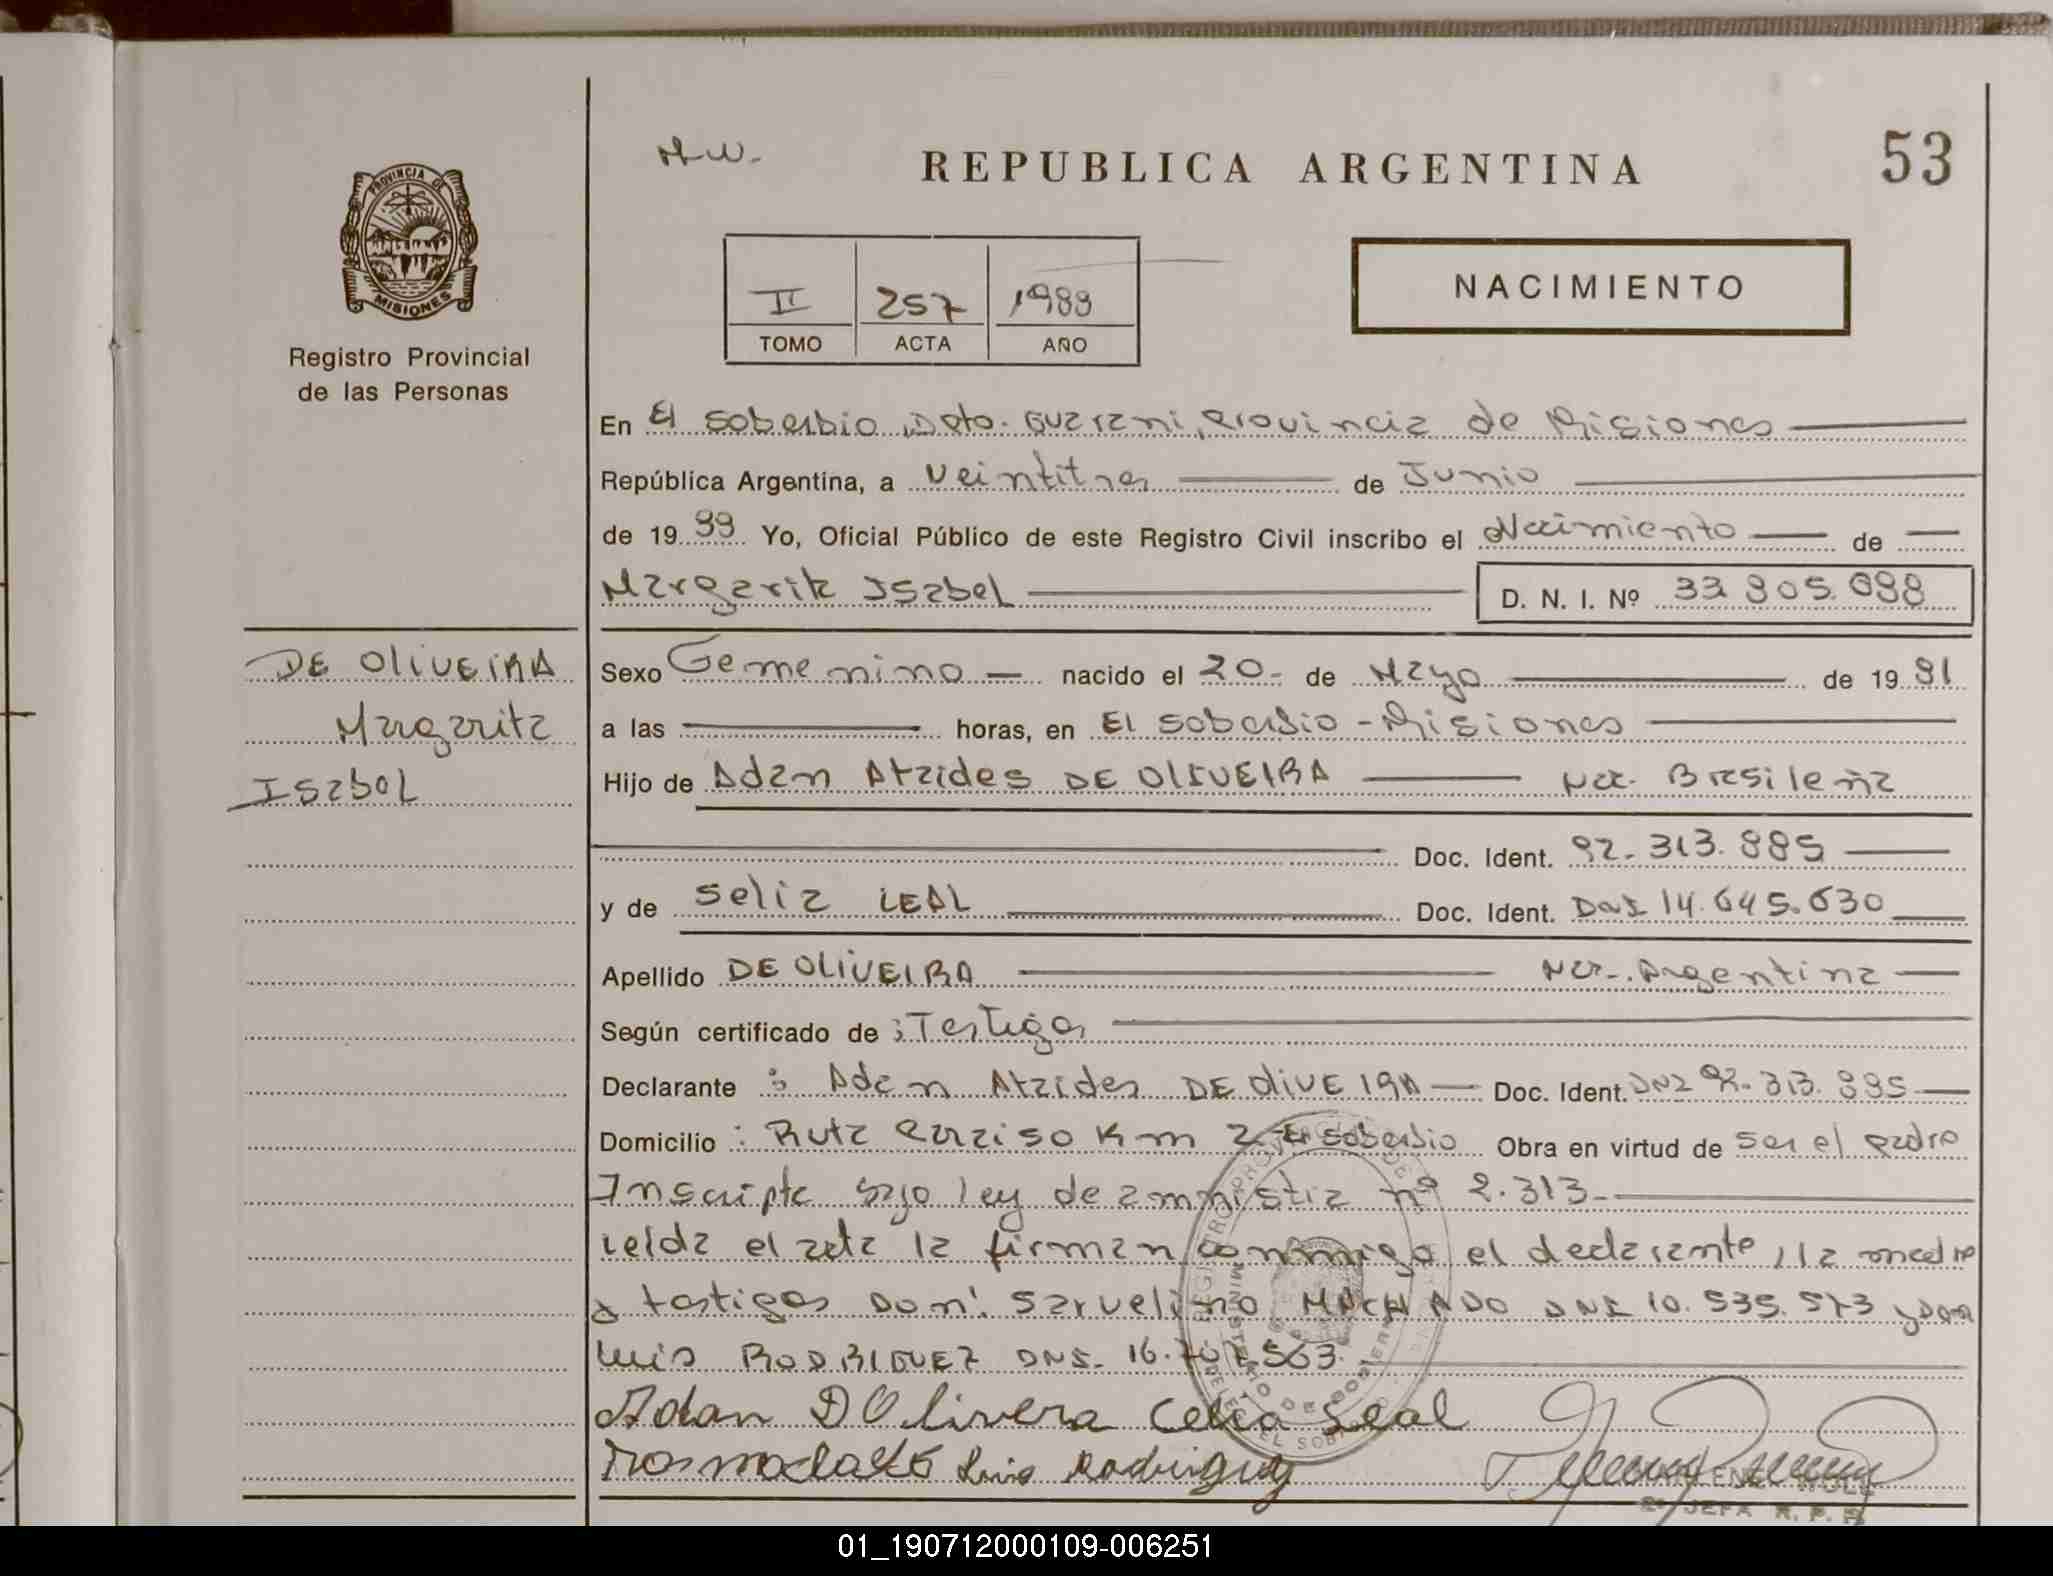 M.W.
REPUBLICA ARGENTINA
53
PROVINCIA DE
MISIONES
Registro Provincial
de las Personas
II 257 1989
TOMO ACTA AÑO
NACIMIENTO
En El Soberbio, Dpto. Guarani, Provincia de Misiones
República Argentina, a Veintitres de Junio
de 1989 Yo, Oficial Público de este Registro Civil inscribo el Nacimiento de
Margarita Isabel D. N. I. Nº
DE OLIVEIRA
Margarita
Isabel
Sexo Femenino nacido el 20 de Mayo de 1981
a las horas, en El Soberbio - Misiones
Hijo de Adan Ataides DE OLIVEIRA Nac. Brasileña
Doc. Ident. 92.313.885
y de Selia LEAL Doc. Ident. DNI 14.645.630
Apellido DE OLIVEIRA Nac. Argentina
Según certificado de : Testigos
Declarante : Adan Ataides DE OLIVEIRA Doc. Ident. DNI 92.313.885
Domicilio : Ruta Paraiso Km 2 El Soberbio Obra en virtud de ser el padre
Inscripta bajo ley de amnistia nº 2.313
Leida el acta la firman conmigo el declarante, la madre
y testigos Don: Sarvelino MACHADO DNI 10.535.573 y Don
Luis RODRIGUEZ DNI. 16.707.563.
Adan D Olivera Celia Leal
Luis Rodriguez
2ª JEFA R. P. P.
01_190712000109-006251